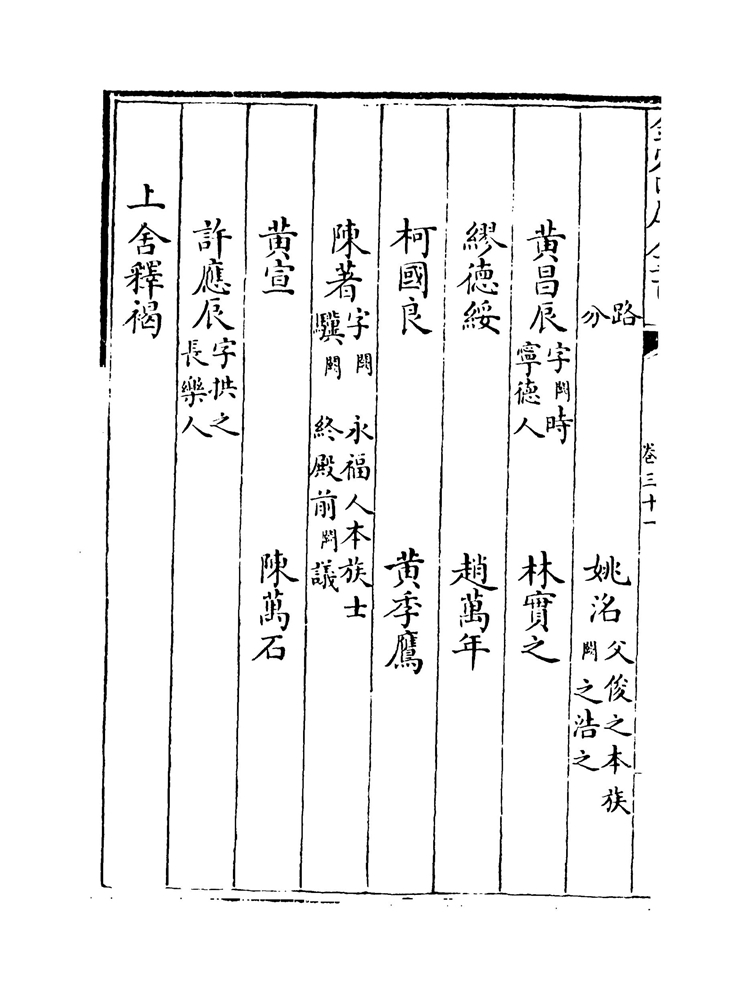 路分　姚洺父俊之本族闗之浩之
黄昌辰字闗時寧德人　林實之
繆德綏　趙萬年
柯國良　黄季鷹
陳著字闗驥闗　永福人本族士終殿前闗議
黄宣　陳萬石
許應辰字拱之長樂人
上舍釋褐
卷三十一